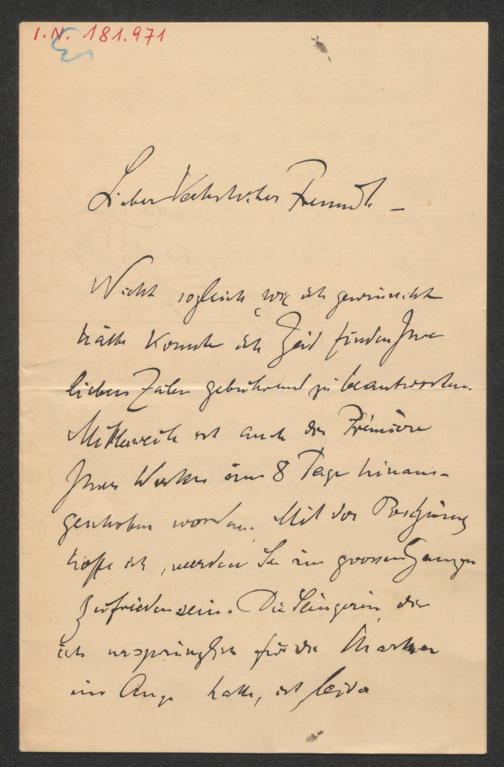 I.N. 181.971
Lieber Verehrtester Freund! –
Nicht sogleich, wie ich gewünscht
hätte konnte ich Zeit finden Ihre
lieben Zeilen gebührend zu beantworten.
Mittlerweile ist auch die Première
Ihres Werkes um 8 Tage hinaus-
geschoben worden. Mit der Besetzung
hoffe ich, werden Sie im grossen Ganzen
zufrieden sein. Die Sängerin, die
ich ursprünglich für die
ins Auge hatte, ist leider